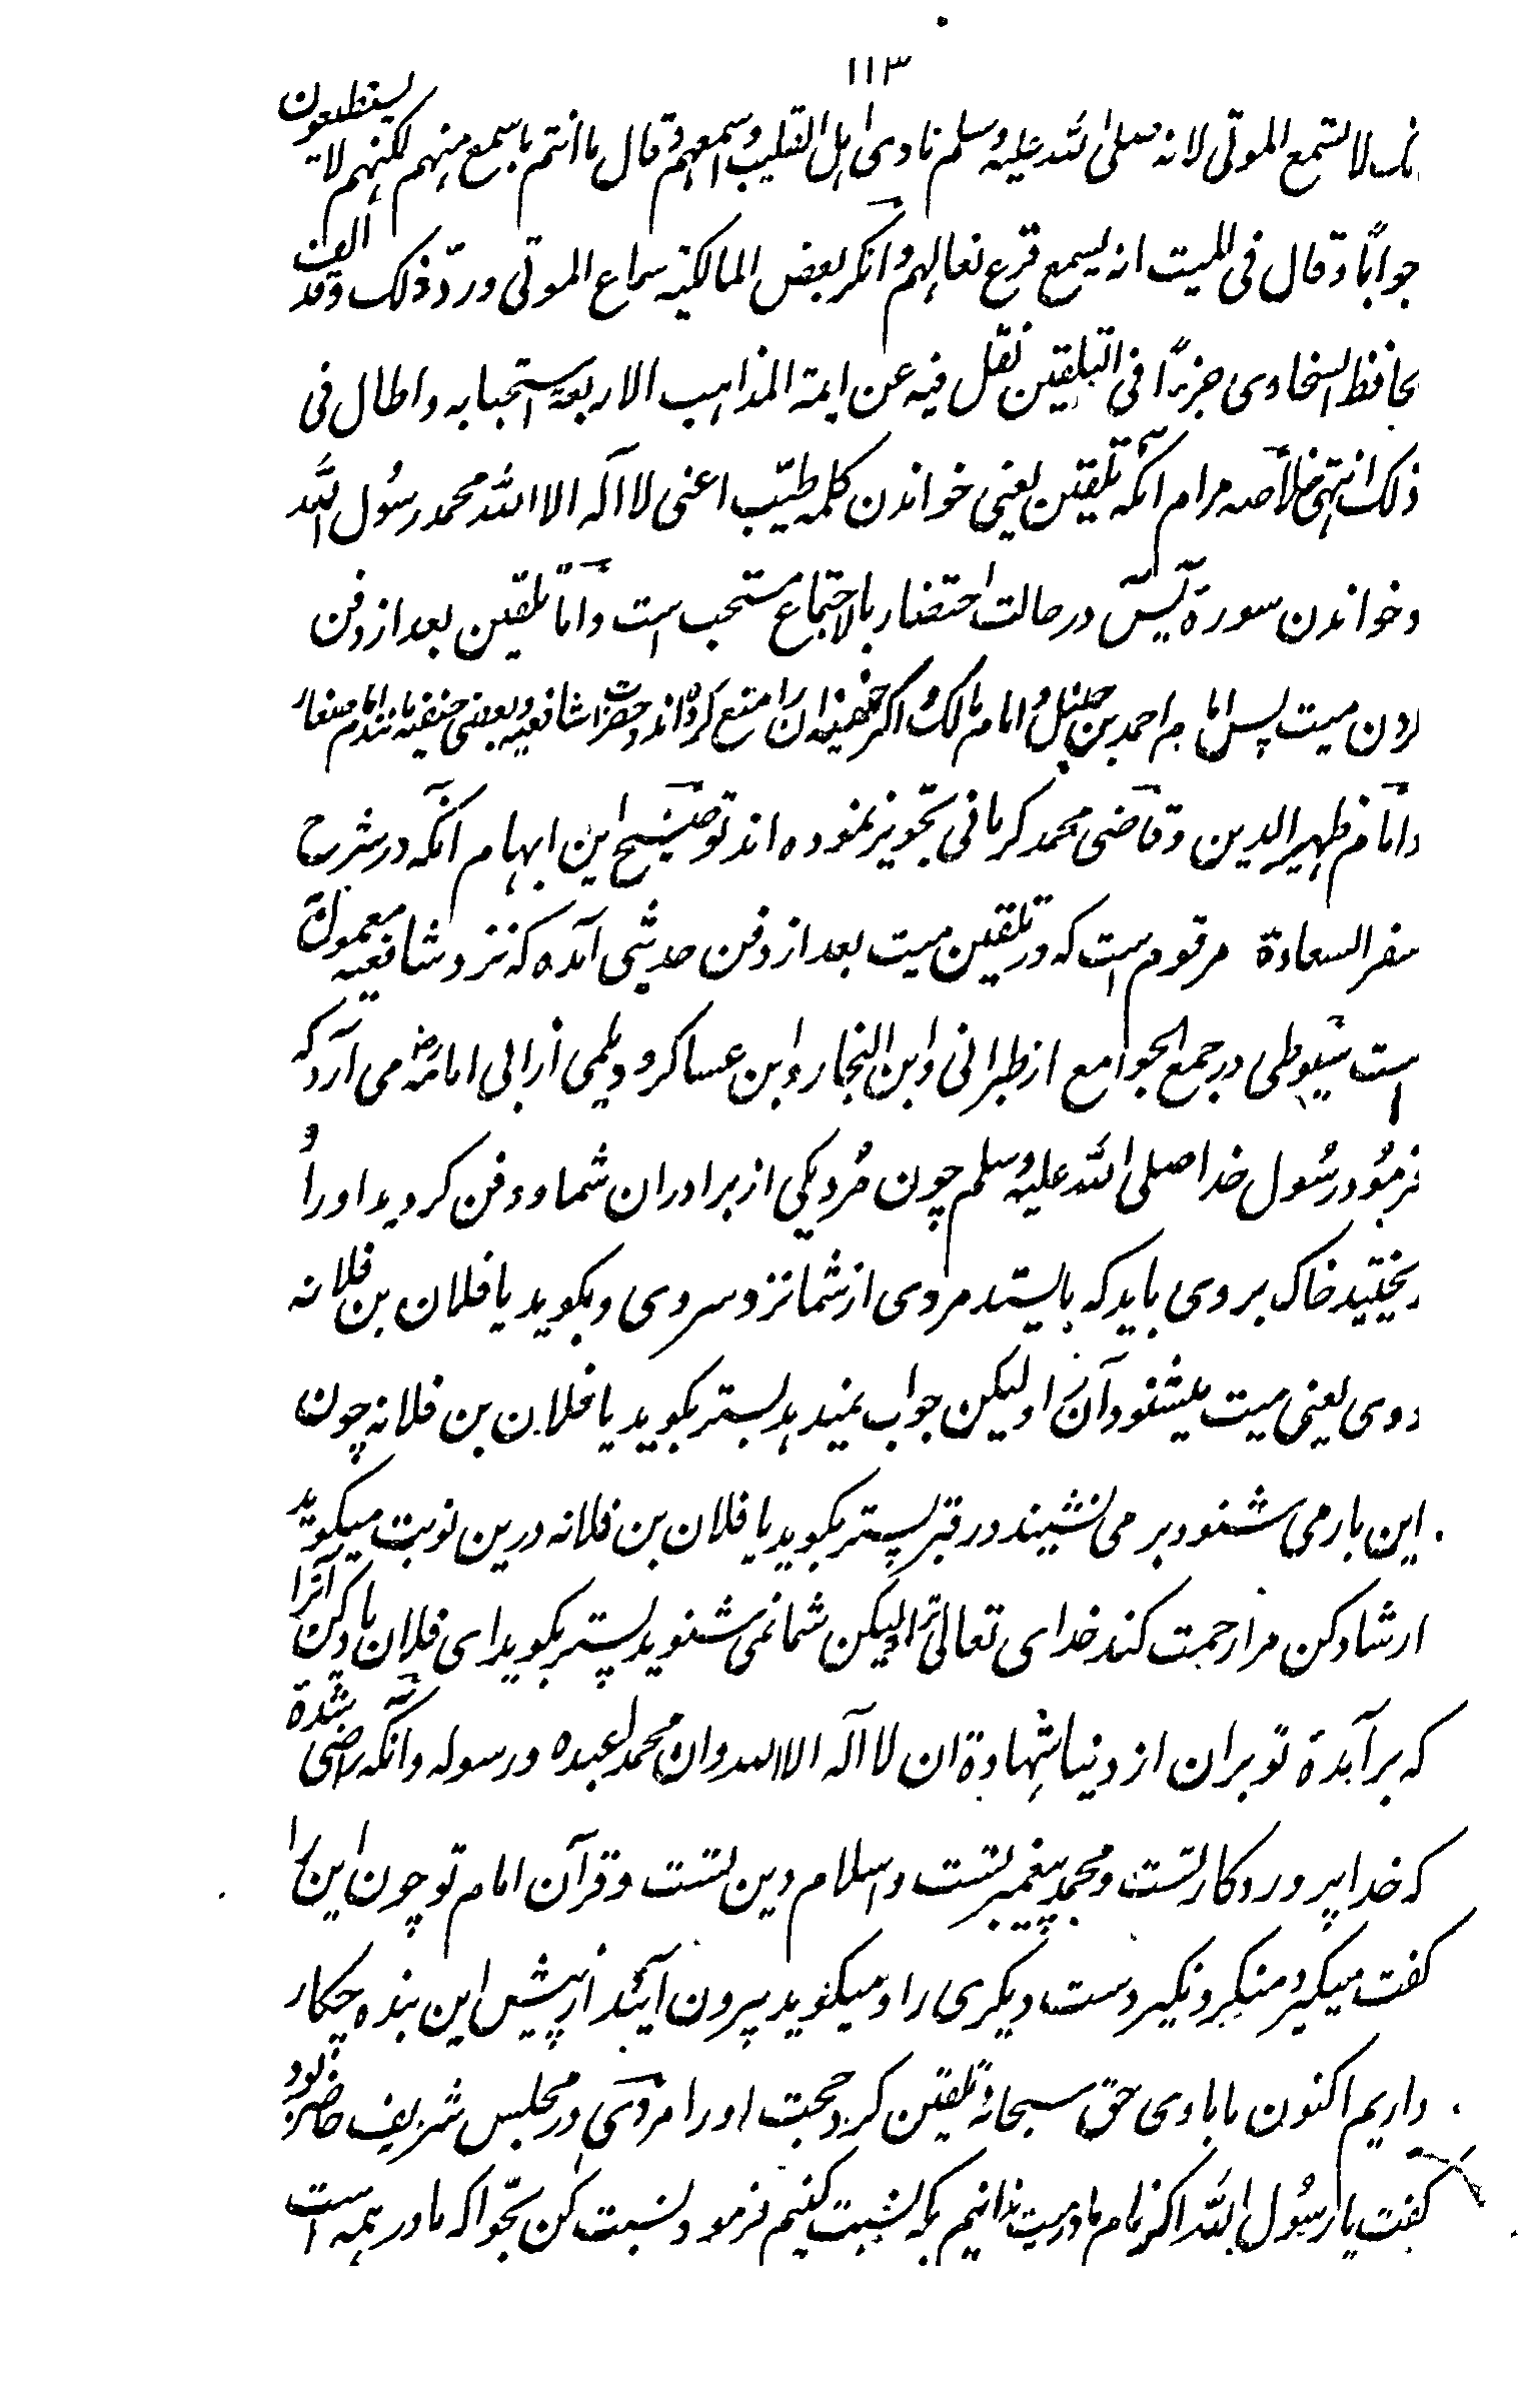 ١١٣
انك لا تسمع الموتى لانه صلى الله عليه وسلم نادى اهل القليب واسمعهم وقال ما انتم باسمع منهم لكنهم لا يستطيعون
جوابًا وقال فى الميت انه يسمع قرع نعالهم وانكر بعض المالكية سماع الموتى وردّ ذلك وقد الف
لحافظ السخاوى جزءًا فى التلقين نقل فيه عن ايمة المذاهب الاربعة استحبابه واطال فى
ذلك انتهى خلاصه مرام آنكه تلقين يعنى خواندن كلمه طيّب اعنى لا آله الا الله محمد رسُول الله
وخواندن سورة يٰسٓ در حالت احتضار بالاجتماع مستحب است وامّا تلقين بعد از دفن
كردن ميت پس امام احمد بن حنبل و امام مالك و اكثر حنفيه آن را منع كرده اند و حضرات شافعيه و بعضى حنفيه مانند امام صفار
وامام ظهير الدين وقاضى محمد كرمانى تجويز نموده اند توضيح اين ابهام آنكه در شرح
سفر السعادة مرقوم است كه در تلقين ميت بعد از دفن حديثى آمده كه نزد شافعيه معمول
است سيوطى در جمع الجوامع از طبرانى و ابن النجار و ابن عساكر و ديلمى از ابى امامه رض مى آرد كه
فرمُود رسُول خدا صلى الله عليه وسلم چون مُرد يكى از برادران شما و دفن كرديد اورا و
ريختيد خاك بروى بايد كه بايستد مردى از شما نزد سر وى و بگويد يا فلان بن فلانه
ووى يعنى ميت ميشنود آن را و ليكن جواب نميدهد پستر بگويد يا فلان بن فلانه چون
اين بار مى شنود بر مى نشيند در قبر پستر بگويد يا فلان بن فلانه درين نوبت ميگويد
ارشاد كن مرا رحمت كند خداى تعالى ترا و ليكن شما نمى شنويد پستر بگويد اى فلان ياد كن آنرا
كه برآمدة تو بران از دنيا شهادة ان لا آله الا الله وان محمدا عبده ورسوله وآنكه راضى شدة
كه خدا پروردگار تست و محمد پيغمبر تست و اسلام دين تست و قرآن امام تو چون اين را
گفت ميگيرد منكر و نكير دست ديگرى را و ميگويد بيرون آئيد از پيش اين بنده چكار
داريم اكنون ما با وى حق سبحانه تلقين كرد حجت اورا مردى در مجلس شريف حاضر بود
گفت يا رسُول الله اگر نام مادر ميت ندانيم بكه نسبت كنيم فرمود نسبت كن بحّوا كه مادر همه است